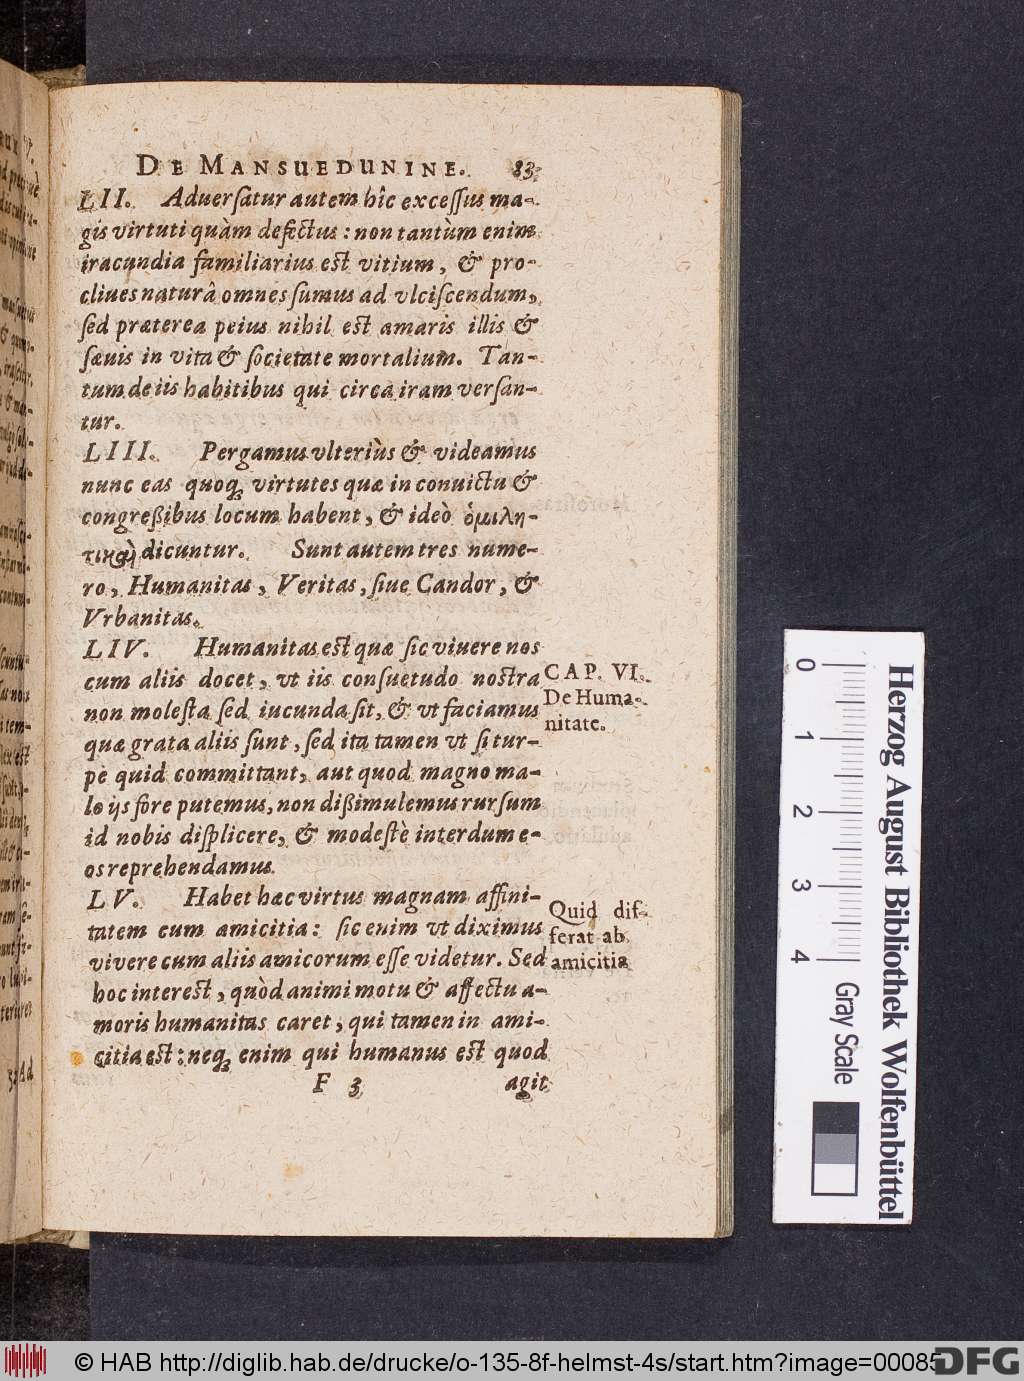 DE MANSUEDUNINE. 83
LII. Aduerſatur autem hîc exceſſus ma-
gis virtuti quàm defectus: non tantùm enim
iracundia familiarius est vitium, & pro-
cliues naturâ omnes ſumus ad vlciſcendum,
ſed præterea peius nihil est amaris illis &
ſæuis in vita & ſocietate mortalium. Tan-
tum de iis habitibus qui circa iram verſan-
tur.
LIII. Pergamus vlteriùs & videamus
nunc eas quoq; virtutes quæ in conuictu &
congreßibus locum habent, & ideò ὁμιλη-
τικαὶ dicuntur. Sunt autem tres nume-
ro, Humanitas, Veritas, ſiue Candor, &
Vrbanitas.
LIV. Humanitas est quæ ſic viuere nos
cum aliis docet, vt iis conſuetudo nostra
non moleſta ſed iucunda ſit, & vt faciamus
quæ grata aliis ſunt, ſed ita tamen vt ſi tur-
pè quid committant, aut quod magno ma-
lo ijs fore putemus, non dißimulemus rurſum
id nobis diſplicere, & modeſtè interdum e-
os reprehendamus.
CAP. VI.
De Huma-
nitate.
LV. Habet hæc virtus magnam affini-
tatem cum amicitia: ſic enim vt diximus
vivere cum aliis amicorum eſſe videtur. Sed
hoc interest, quòd animi motu & affectu a-
moris humanitas caret, qui tamen in ami-
citia est: neq; enim qui humanus est quod
Quid dif-
ferat ab
amicitia
F 3 agit
0 1 2 3 4
Gray Scale
Herzog August Bibliothek Wolfenbüttel
© HAB http://diglib.hab.de/drucke/o-135-8f-helmst-4s/start.htm?image=00085
DFG